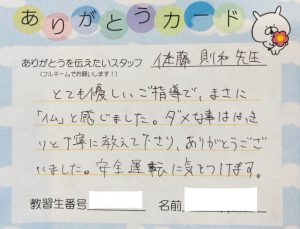 ありがとうカード
ありがとうを伝えたいスタッフ 佐藤 則和 先生
(フルネームでお願いします!)
とても優しいご指導で、まさに
「仏」と感じました。ダメな事ははっき
りと丁寧に教えて下さり、ありがとうござ
いました。安全運転に気をつけます。
教習生番号 名前